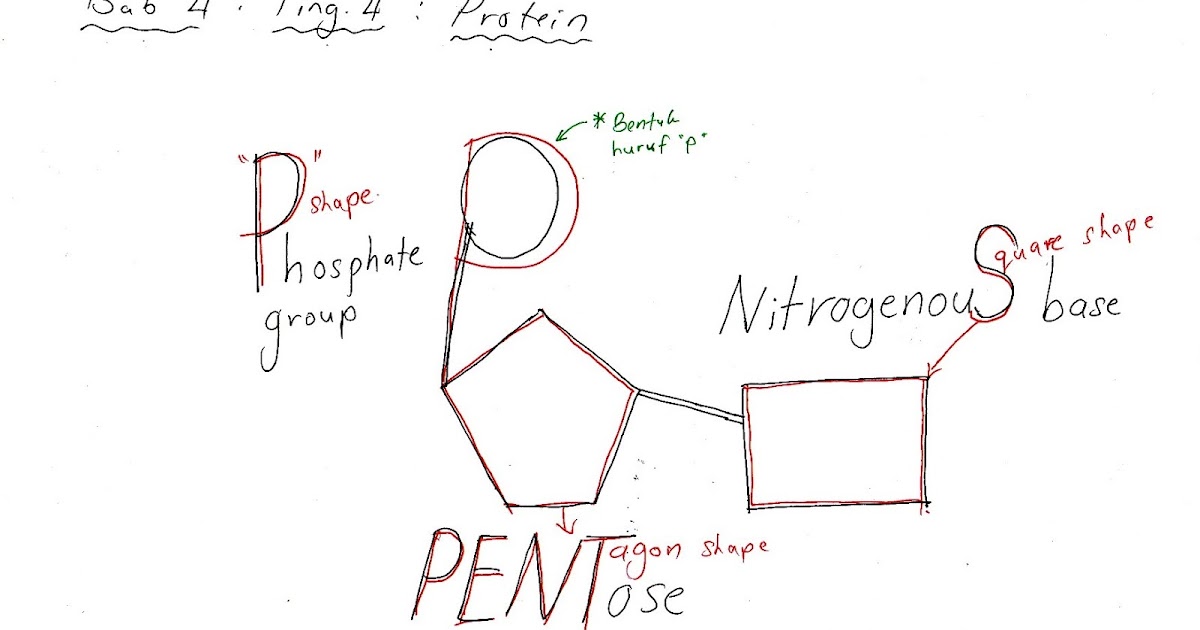 Bab 4 : Ting. 4 : Protein
* Bentuk
huruf "P"
"P" shape
Phosphate
group
Square shape
NitrogenouS base
PENTagon shape
PENTose